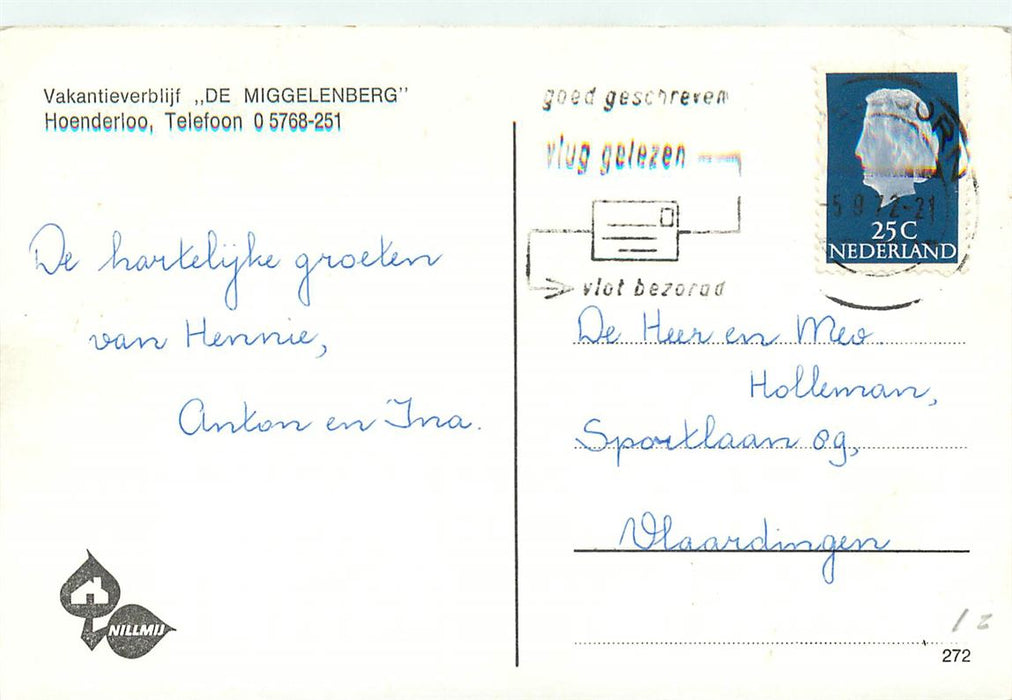 Vakantieverblijf „DE MIGGELENBERG”
Hoenderloo, Telefoon 0 5768-251
De hartelijke groeten
van Hennie,
Anton en Ina.
NILLMIJ
goed geschreven
vlug gelezen
vlot bezorgd
-5 9 72-21
25C
NEDERLAND
De Heer en Mev.
Holleman,
Sportlaan 89,
Vlaardingen
272